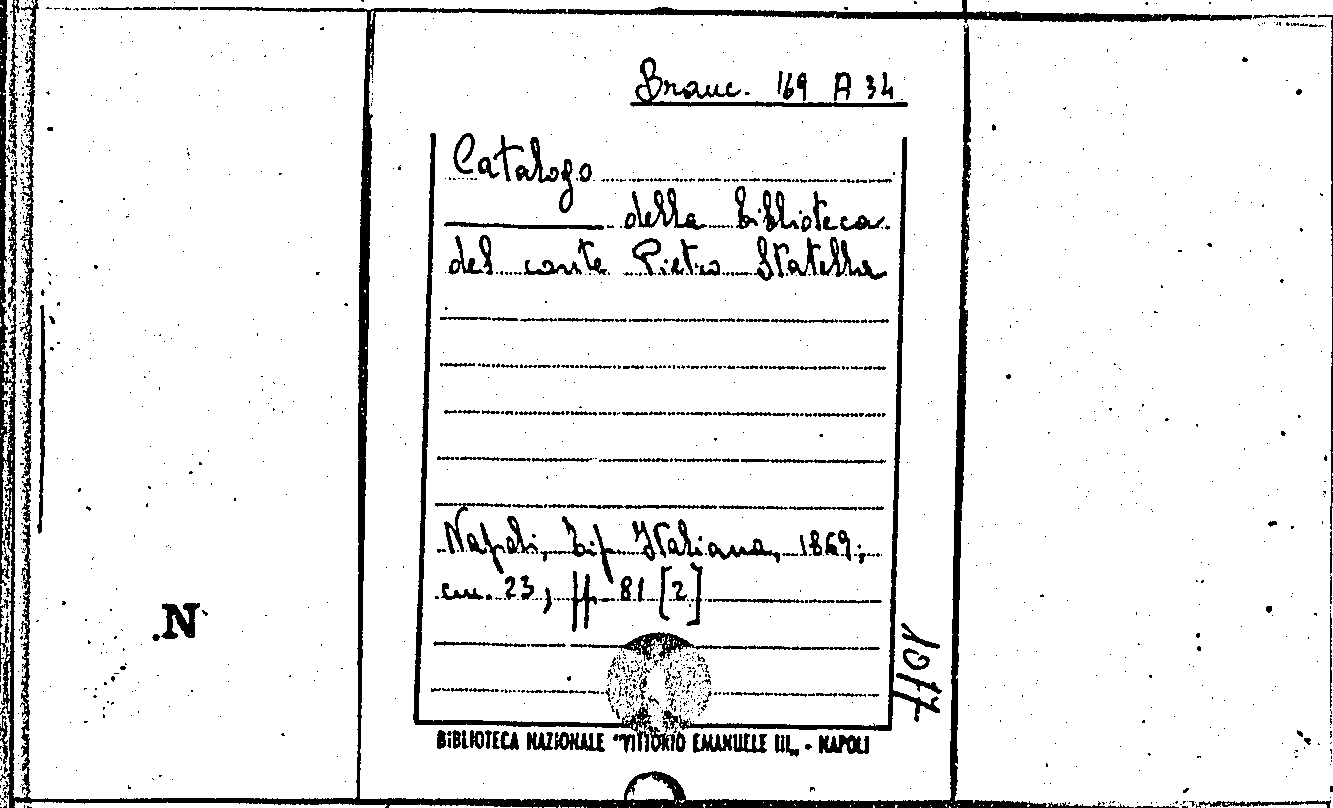 Branc. 169 A 34
Catalogo
della biblioteca
del conte Pietro Statella
Napoli, Tip. Italiana, 1869;
cm. 23, pp. 81 [2]
1077
.N
BIBLIOTECA NAZIONALE "VITTORIO EMANUELE III„ - NAPOLI